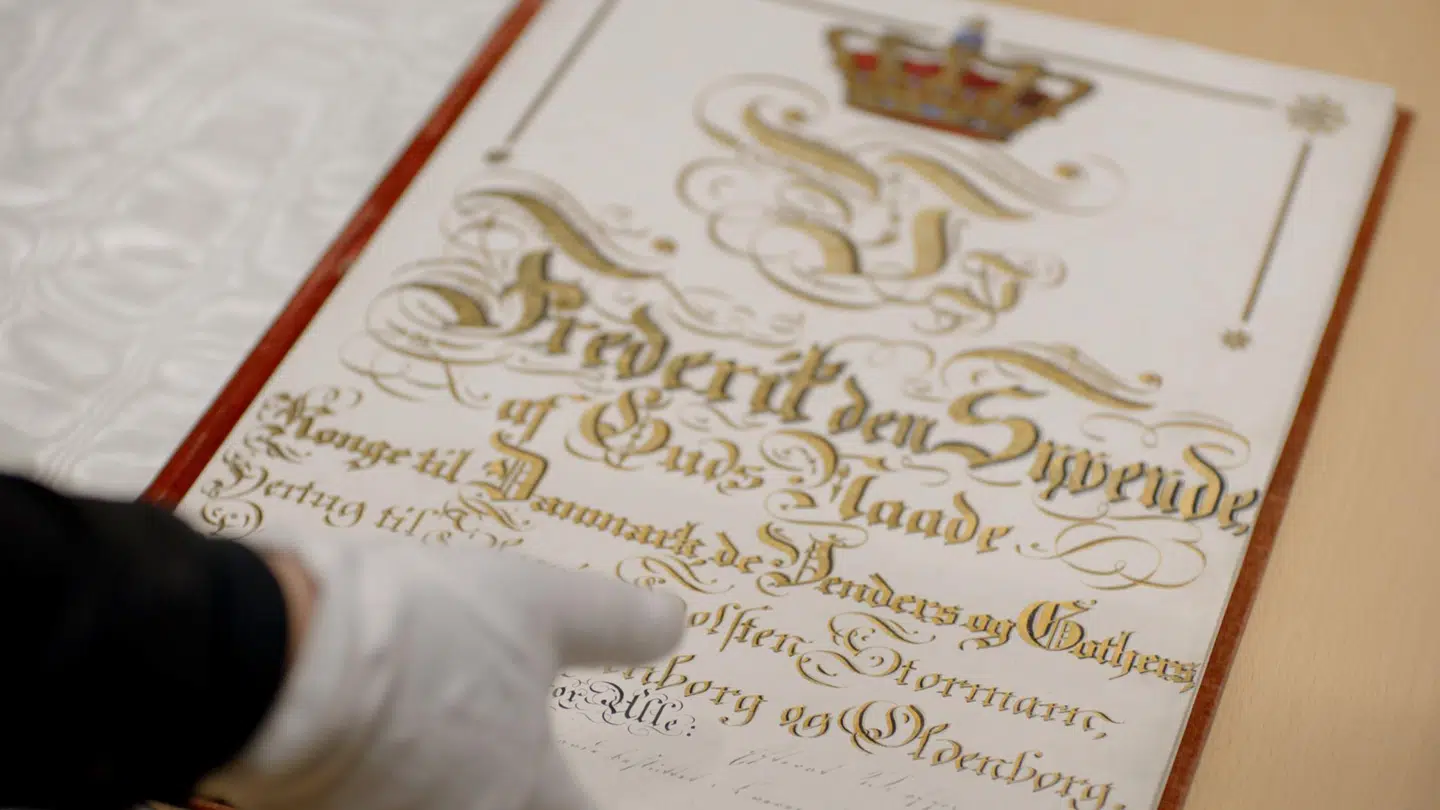 Frederik den Syvende,
af Guds Naade
Konge til Danmark, de Venders og Gothers,
Hertug til olsten, Stormarn,
enborg og Oldenborg,
or Alle: